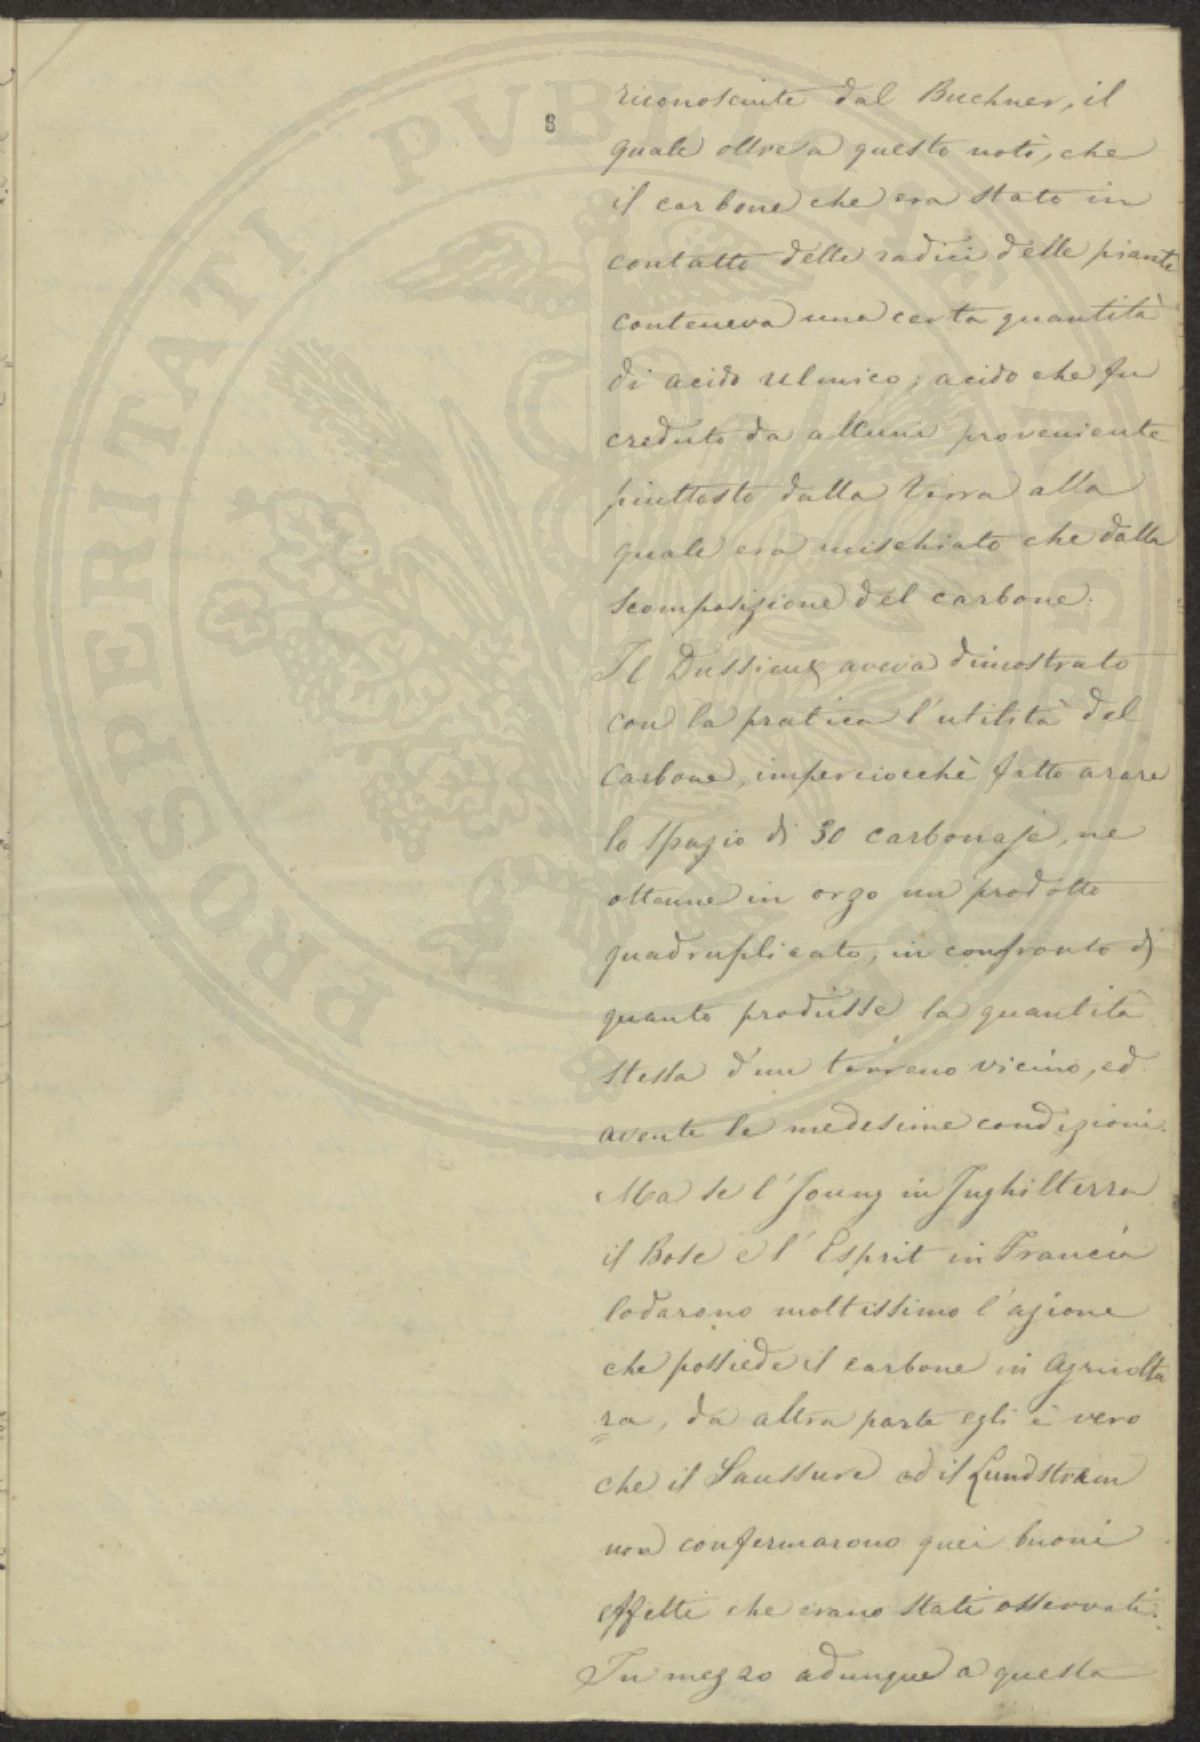 8
riconosciute dal Buchner, il
quale oltre a questo notò, che
il carbone che era stato in
contatto delle radici delle piante
conteneva una certa quantità
di acido ulmico, acido che fu
creduto da alcuni proveniente
piuttosto dalla terra alla
quale era mischiato che dalla
scomposizione del carbone.
Il Dussieux aveva dimostrato
con la pratica l'utilità del
carbone, imperciocchè fatto arare
lo spazio di 30 carbonaje, ne
ottenne in orzo un prodotto
quadruplicato, in confronto di
quanto produsse la quantità
stessa d'un terreno vicino, ed
avente le medesime condizioni.
Ma se l'Joung in Inghilterra
il Bosc e l'Esprit in Francia
lodarono moltissimo l'azione
che possiede il carbone in Agricoltu
ra, da altra parte egli è vero
che il Saussure ed il Lundstrom
non confermarono quei buoni
effetti che erano stati osservati.
In mezzo adunque a questa
PROSPERITATI PVBLICAE